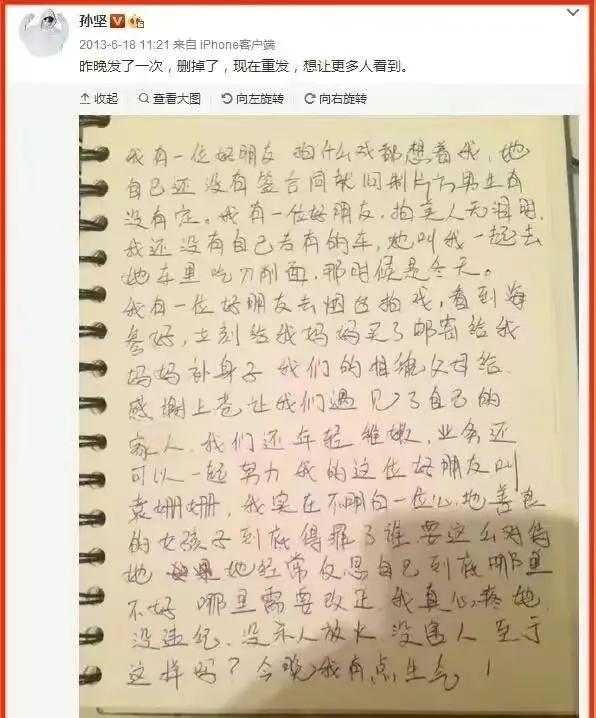 孙坚
2013-6-18 11:21 来自 iPhone客户端
昨晚发了一次，删掉了，现在重发，想让更多人看到。
收起 查看大图 向左旋转 向右旋转
我有一位好朋友 拍什么戏都想着我，她
自己还没有签合同就问制片方男生有
没有定。我有一位好朋友，拍美人无泪时，
我还没有自己专有的车，她叫我一起去
她车里吃刀削面，那时候是冬天。
我有一位好朋友去烟台拍戏，看到海
参好，立刻给我妈妈买了邮寄给我
妈妈补身子 我们的相貌父母给，
感谢上苍让我们遇见了自己的
家人，我们还年轻稚嫩，业务还
可以一起努力 我的这位好朋友叫
袁姗姗，我实在不明白一位心地善良
的女孩子到底得罪了谁，要这么对待
她 她经常反思自己到底哪里
不好 哪里需要改正，我真心疼她，
没违纪，没杀人放火 没害人 至于
这样吗？今晚我有点生气！